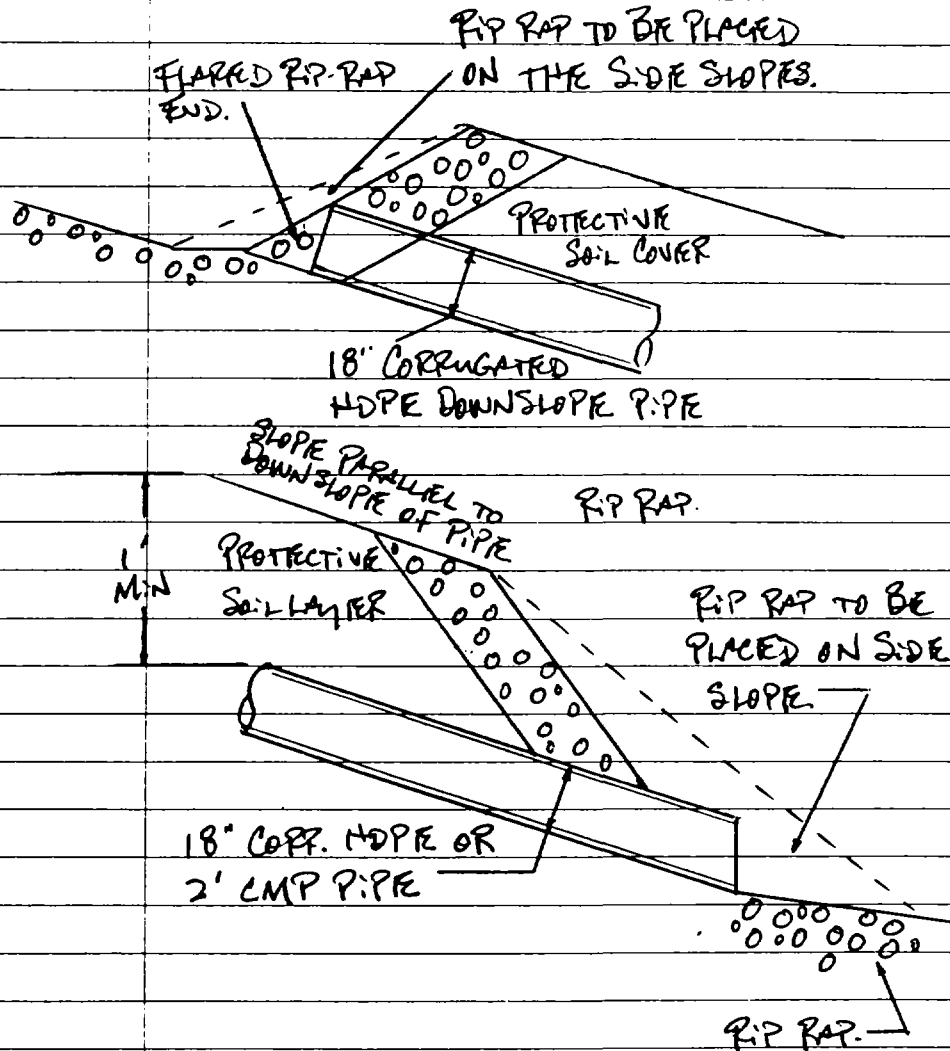 RIP RAP TO BE PLACED
ON THE SIDE SLOPES.
FLARED RIP-RAP
END.
PROTECTIVE
SOIL COVER
18" CORRUGATED
HDPE DOWNSLOPE PIPE
SLOPE PARALLEL TO
DOWNSLOPE OF PIPE
RIP RAP.
1'
MIN
PROTECTIVE
SOIL LAYER
RIP RAP TO BE
PLACED ON SIDE
SLOPE
18" CORR. HDPE OR
2' CMP PIPE
RIP RAP.